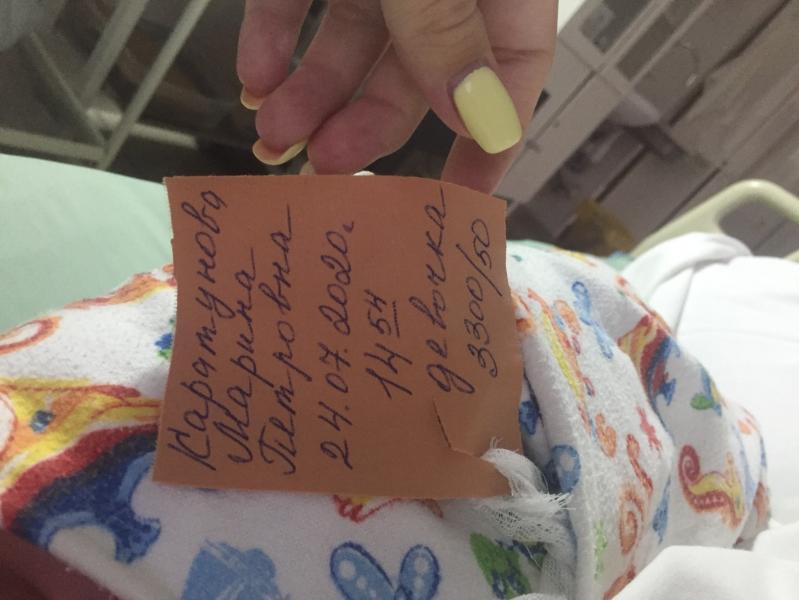 Каратунова
Марина
Петровна
24.07.2020г
14 54
девочка
3300/50